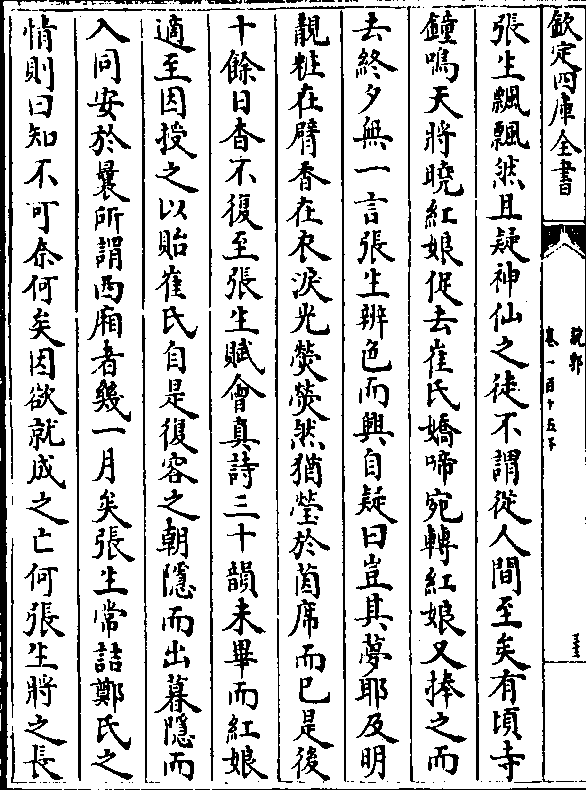 欽定四庫全書
說郛
卷一百十五下
張生飄飄然且疑神仙之徒不謂從人間至矣有頃寺
鐘鳴天將曉紅娘促去崔氏嬌啼宛轉紅娘又捧之而
去終夕無一言張生辨色而興自疑曰豈其夢耶及明
靚粧在臂香在衣淚光熒熒然猶瑩於茵席而已是後
十餘日杳不復至張生賦會真詩三十韻未畢而紅娘
適至因授之以貽崔氏自是復容之朝隱而出暮隱而
入同安於曩所謂西廂者幾一月矣張生常詰鄭氏之
情則曰知不可奈何矣因欲就成之亡何張生將之長